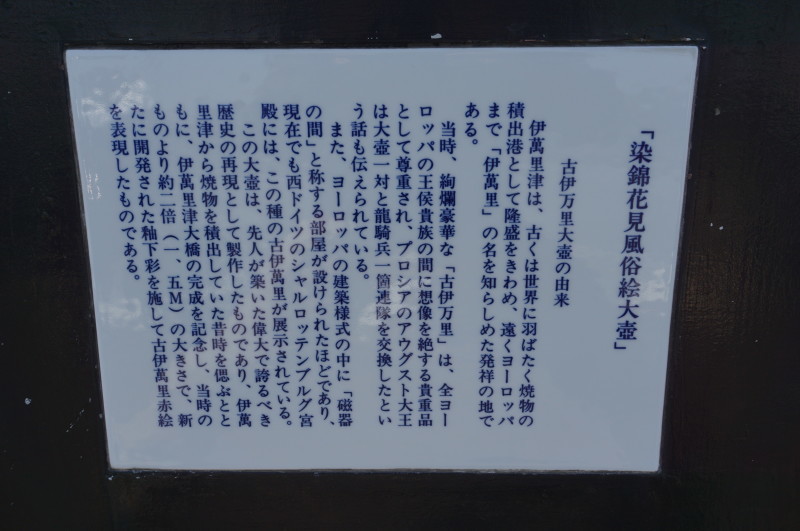 「染錦花見風俗絵大壺」
古伊万里大壺の由来
伊萬里津は、古くは世界に羽ばたく焼物の
積出港として隆盛をきわめ、遠くヨーロッパ
まで「伊萬里」の名を知らしめた発祥の地で
ある。
当時、絢爛豪華な「古伊万里」は、全ヨー
ロッパの王侯貴族の間に想像を絶する貴重品
として尊重され、プロシアのアウグスト大王
は大壺一対と龍騎兵一箇連隊を交換したとい
う話も伝えられている。
また、ヨーロッパの建築様式の中に「磁器
の間」と称する部屋が設けられたほどであり、
現在でも西ドイツのシャルロッテンブルグ宮
殿には、この種の古伊萬里が展示されている。
この大壺は、先人が築いた偉大で誇るべき
歴史の再現として製作したものであり、伊萬
里津から焼物を積出していた昔時を偲ぶとと
もに、伊萬里津大橋の完成を記念し、当時の
ものより約二倍（一、五Ｍ）の大きさで、新
たに開発された釉下彩を施して古伊萬里赤絵
を表現したものである。